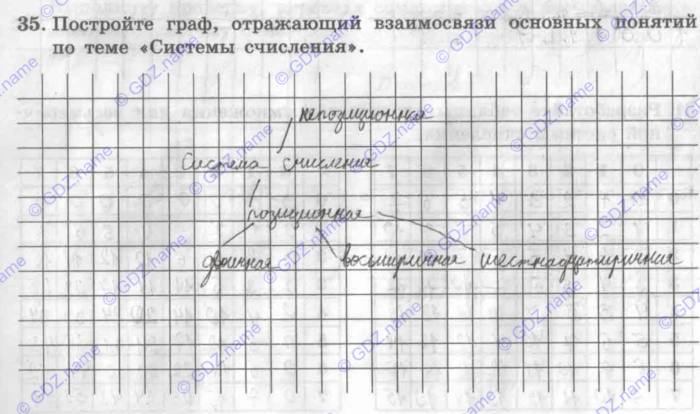 35. Постройте граф, отражающий взаимосвязи основных понятий
по теме «Системы счисления».
непозиционная
Система счисления
позиционная
двоичная восьмиричная шестнадцатиричная
© GDZ.name